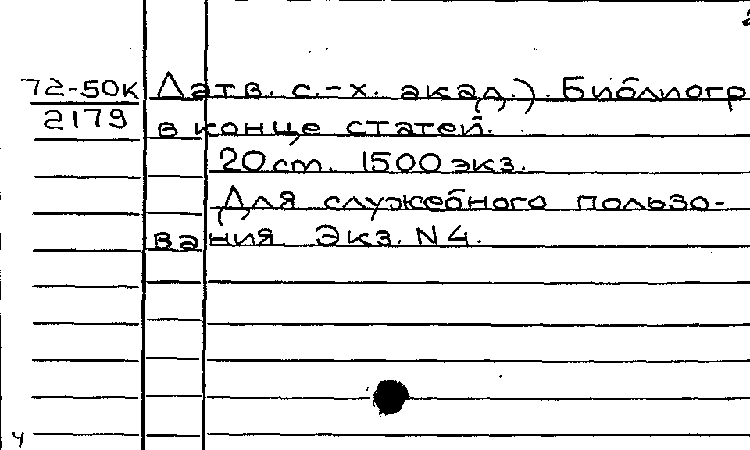 72-50к Латв. с.-х. акад.). Библиогр
2179 в конце статей.
20 cm. 1500 экз.
Для служебного пользо-
вания Экз. N 4.
ч